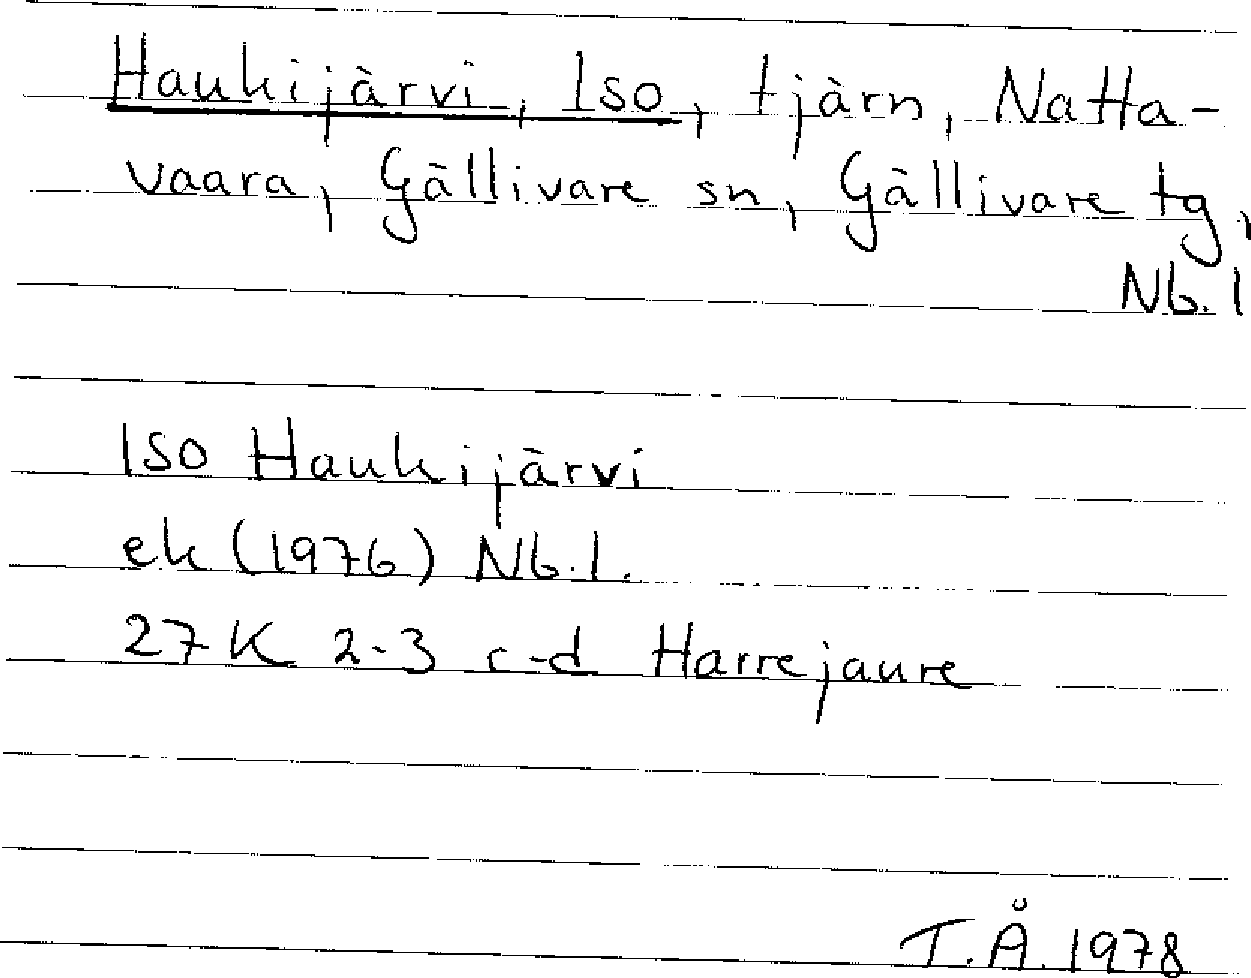 Haukijärvi, Iso, tjärn, Natta-
vaara, Gällivare sn, Gällivare tg,
Nb. l
Iso Haukijärvi
ek (1976) Nb. l.
27 K 2-3 c-d Harrejaure
T.Å. 1978